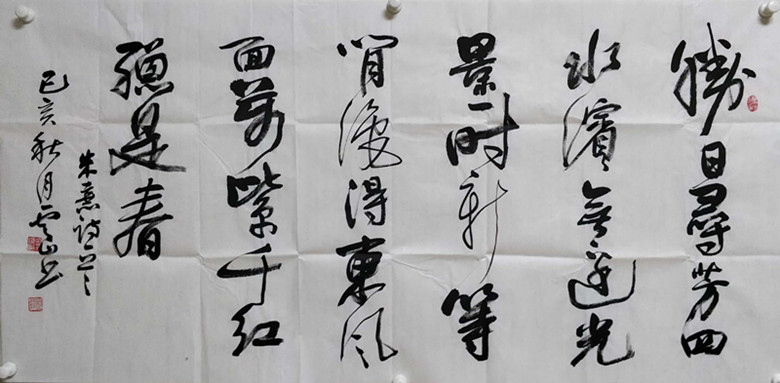 勝日尋芳四
水濱無邊光
景一时新等
閒識得東风
面萬紫千红
總是春
朱熹诗一首
己亥秋月雲山书